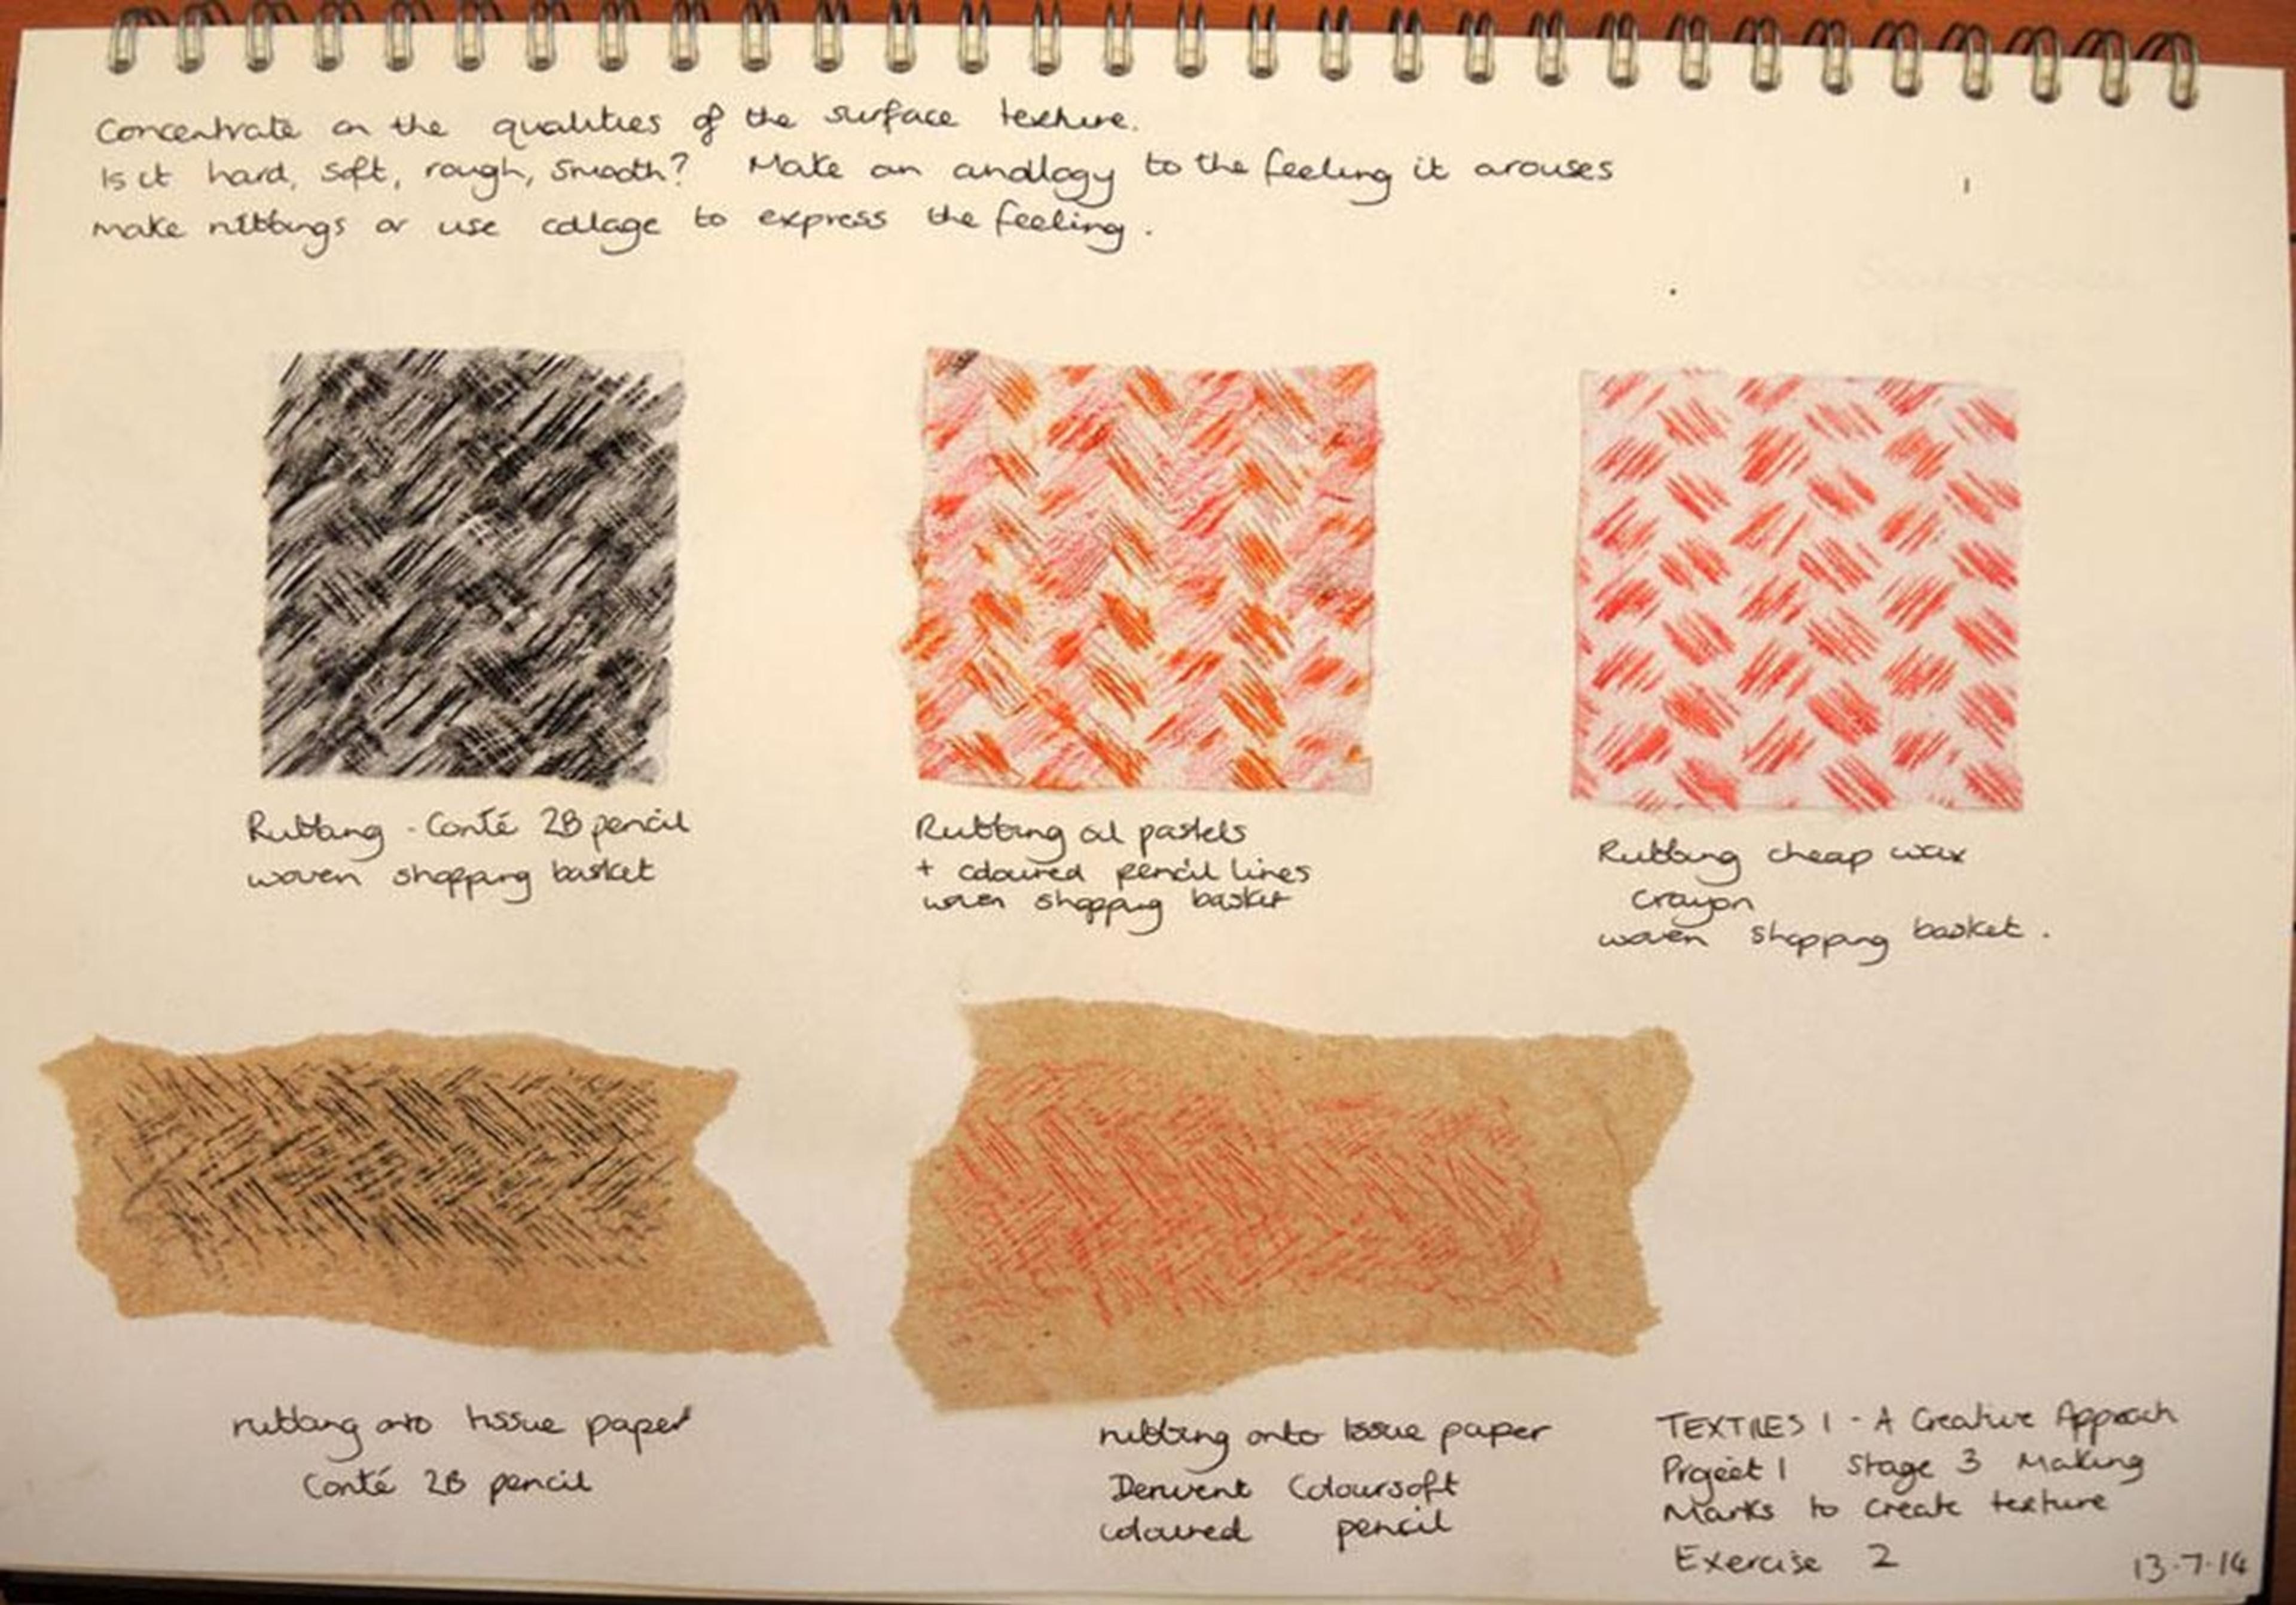 Concentrate on the qualities of the surface texture.
Is it hard, soft, rough, smooth? Make an analogy to the feeling it arouses
make rubbings or use collage to express the feeling.
Rubbing - Conté 2B pencil
woven shopping basket
Rubbing oil pastels
+ coloured pencil lines
woven shopping basket
Rubbing cheap wax
crayon
woven shopping basket.
rubbing onto tissue paper
Conté 2B pencil
rubbing onto tissue paper
Derwent Coloursoft
coloured pencil
TEXTILES 1 - A Creative Approach
Project 1 Stage 3 Making
Marks to create texture
Exercise 2
13.7.14